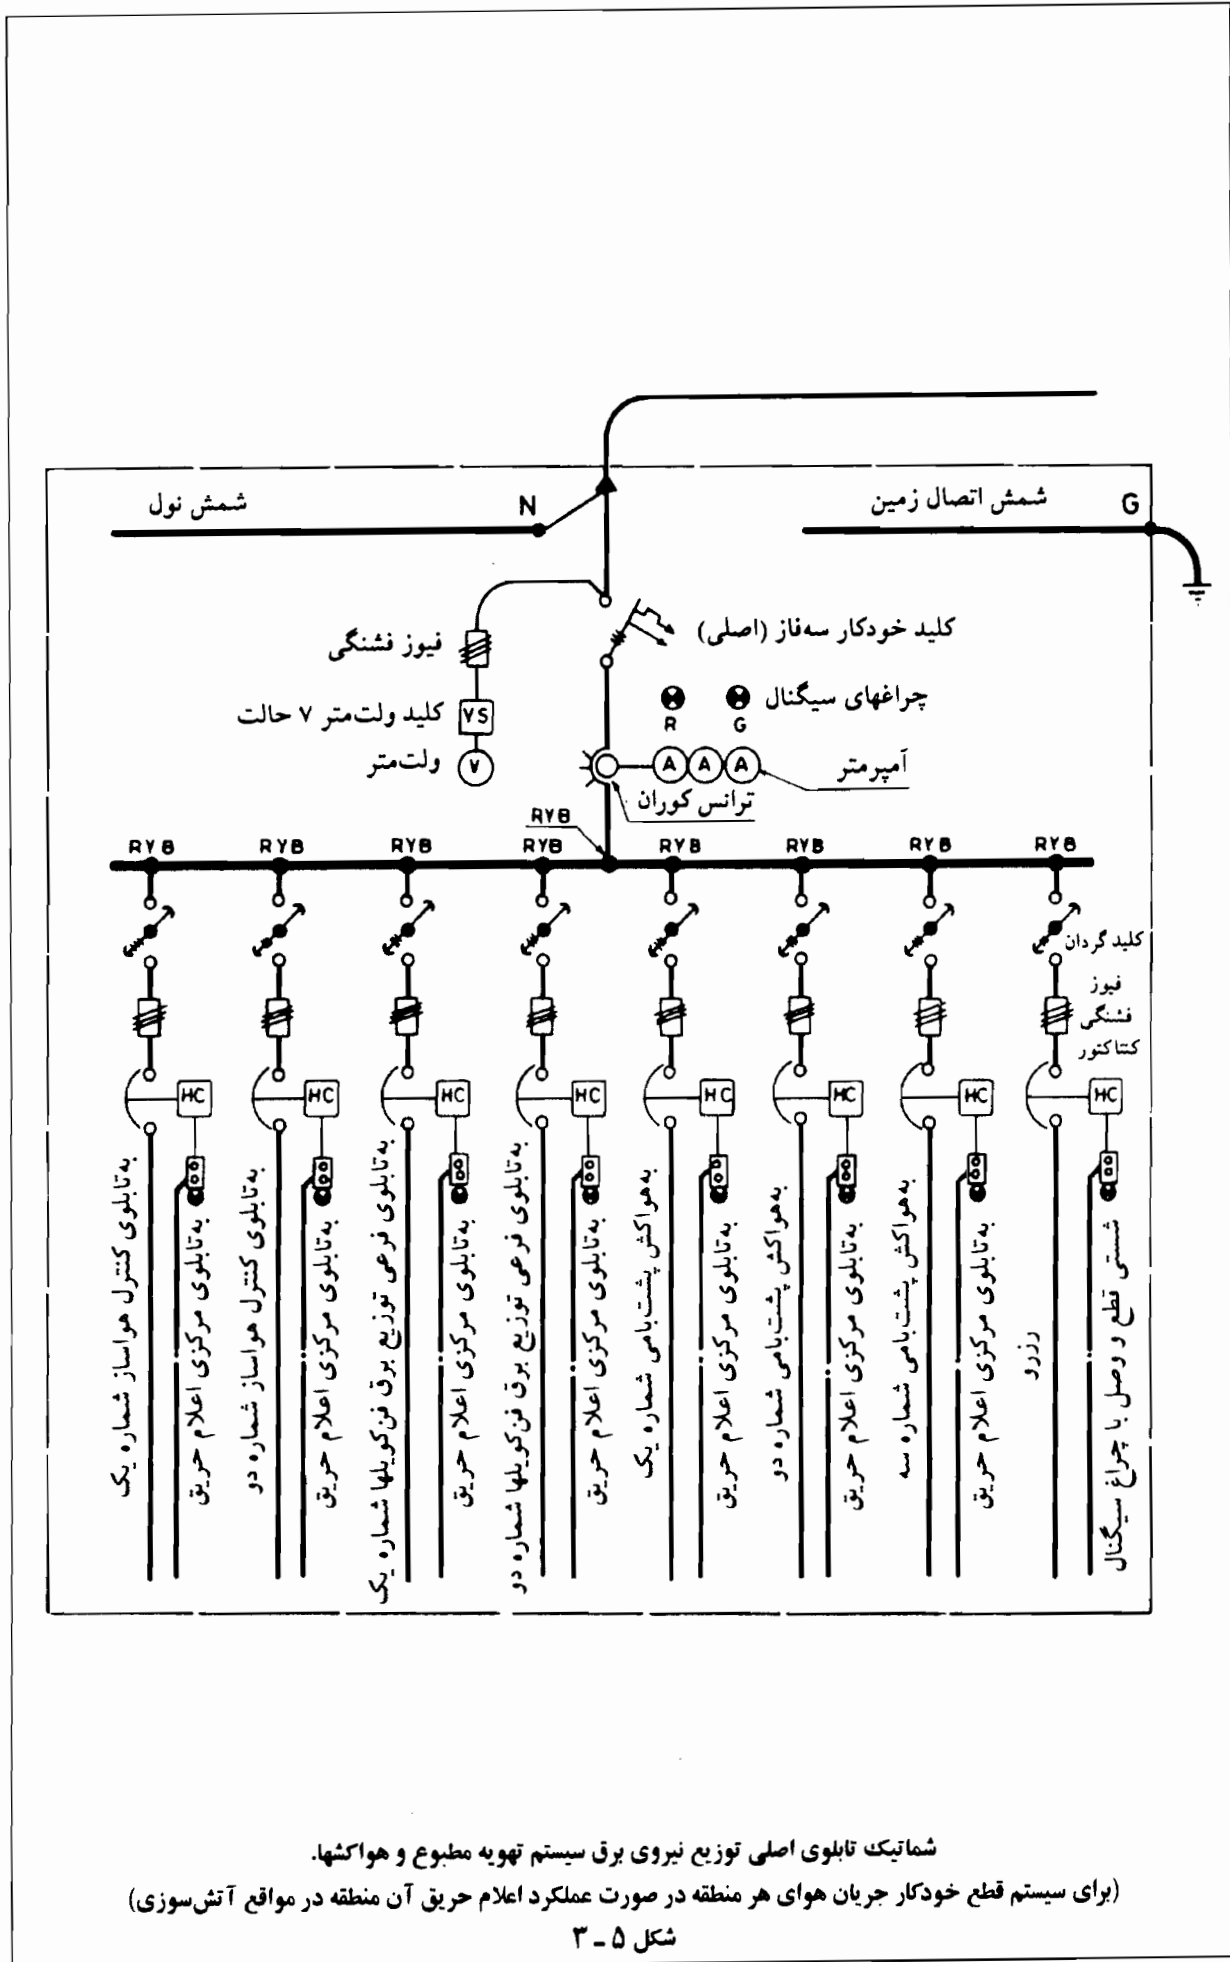 شمش نول
N
شمش اتصال زمین
G
کلید خودکار سه‌فاز (اصلی)
فیوز فشنگی
چراغهای سیگنال
R
G
کلید ولت‌متر ۷ حالت
VS
ولت‌متر
V
A
A
A
آمپرمتر
ترانس کوران
RYB
RYB
RYB
RYB
RYB
RYB
RYB
RYB
RYB
کلید گردان
فیوز
فشنگی
کنتاکتور
HC
HC
HC
HC
HC
HC
HC
HC
به‌تابلوی کنترل هواساز شماره یک
به‌تابلوی مرکزی اعلام حریق
به‌تابلوی کنترل هواساز شماره دو
به‌تابلوی مرکزی اعلام حریق
به‌تابلوی فرعی توزیع برق فن‌کویلها شماره یک
به‌تابلوی مرکزی اعلام حریق
به‌تابلوی فرعی توزیع برق فن‌کویلها شماره دو
به‌تابلوی مرکزی اعلام حریق
به‌هواکش پشت‌بامی شماره یک
به‌تابلوی مرکزی اعلام حریق
به‌هواکش پشت‌بامی شماره دو
به‌تابلوی مرکزی اعلام حریق
به‌هواکش پشت‌بامی شماره سه
به‌تابلوی مرکزی اعلام حریق
رزرو
شستی قطع و وصل با چراغ سیگنال
شماتیک تابلوی اصلی توزیع نیروی برق سیستم تهویه مطبوع و هواکشها.
(برای سیستم قطع خودکار جریان هوای هر منطقه در صورت عملکرد اعلام حریق آن منطقه در مواقع آتش‌سوزی)
شکل ۵ ـ ۳